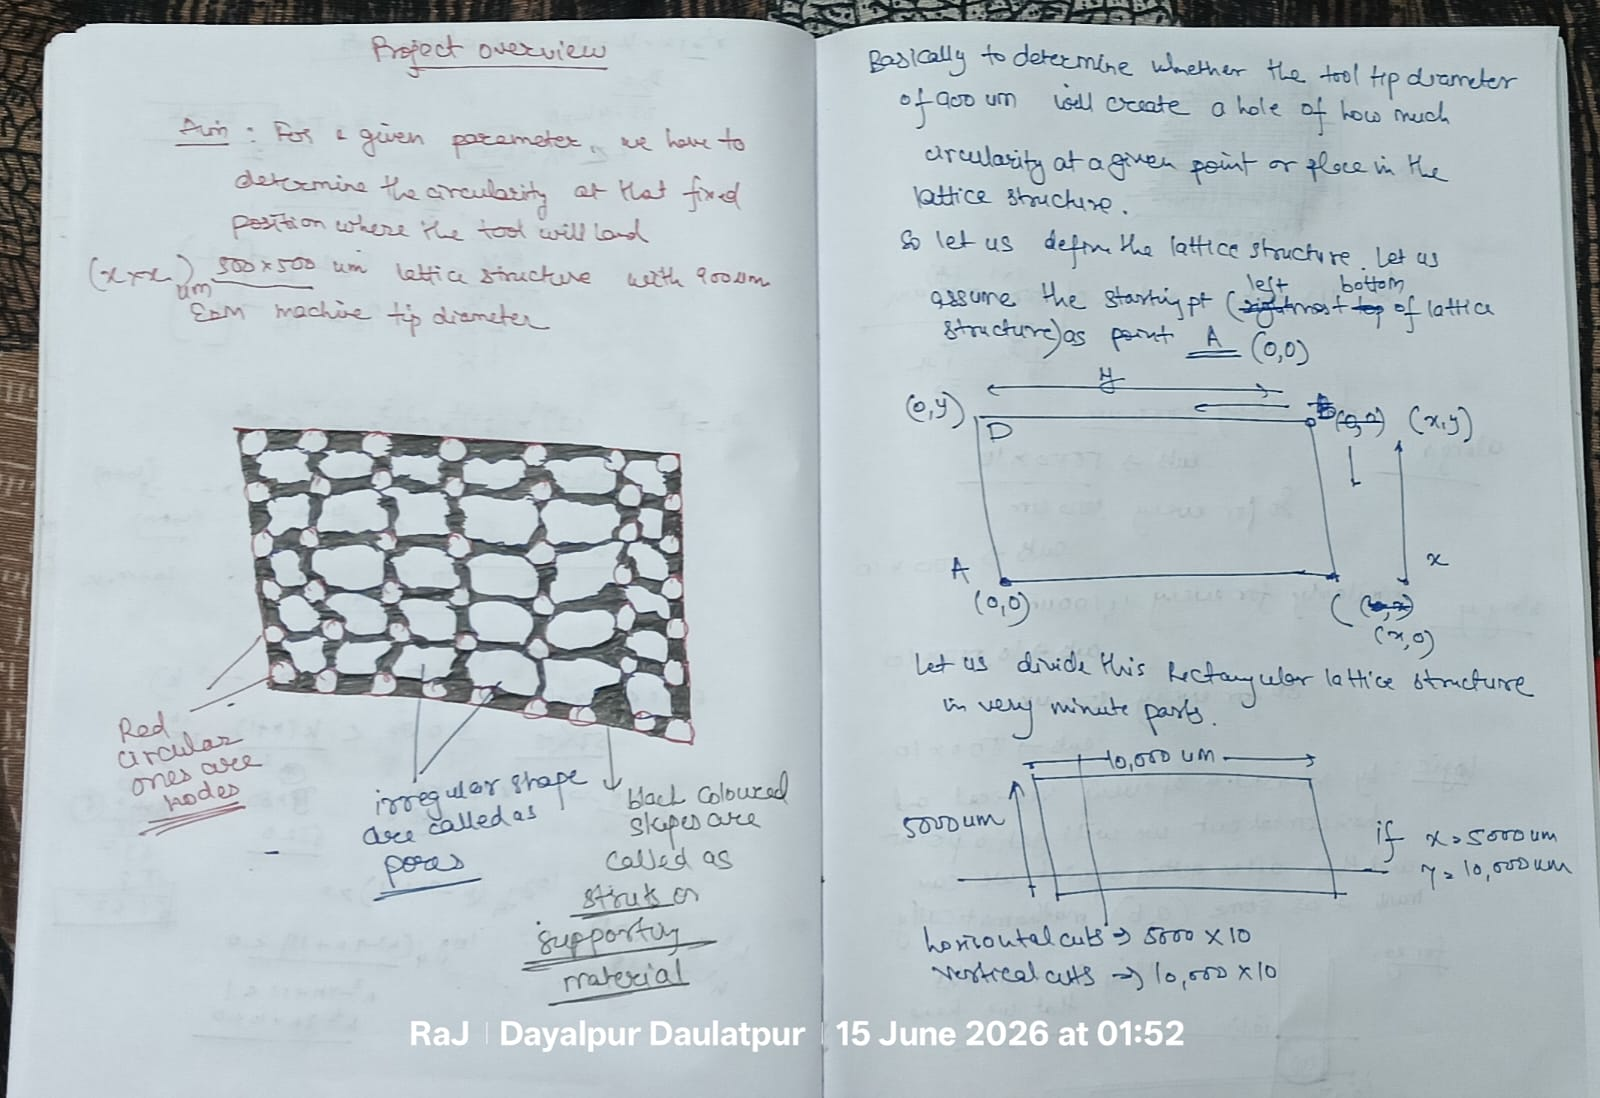 Project overview
Aim : For a given parameter, we have to
determine the circularity at that fixed
position where the tool will land
(x × x) um 500 × 500 um lattice structure with 900um
EDM machine tip diameter
Red
circular
ones are
nodes
irregular shape
are called as
pores
black coloured
shapes are
called as
struts or
supporting
material
Basically to determine whether the tool tip diameter
of 900 um will create a hole of how much
circularity at a given point or place in the
lattice structure.
So let us define the lattice structure. Let us
left bottom
assume the starting pt (rightmost top of lattice
structure) as point A (0,0)
y
(0,y) D B (0,0) (x,y)
A x
(0,0) (
(x,0)
Let us divide this Rectangular lattice structure
in very minute parts.
10,000 um
5000um
if x = 5000um
y = 10,000um
horizontal cuts → 5000 × 10
vertical cuts → 10,000 × 10
RaJ | Dayalpur Daulatpur | 15 June 2026 at 01:52